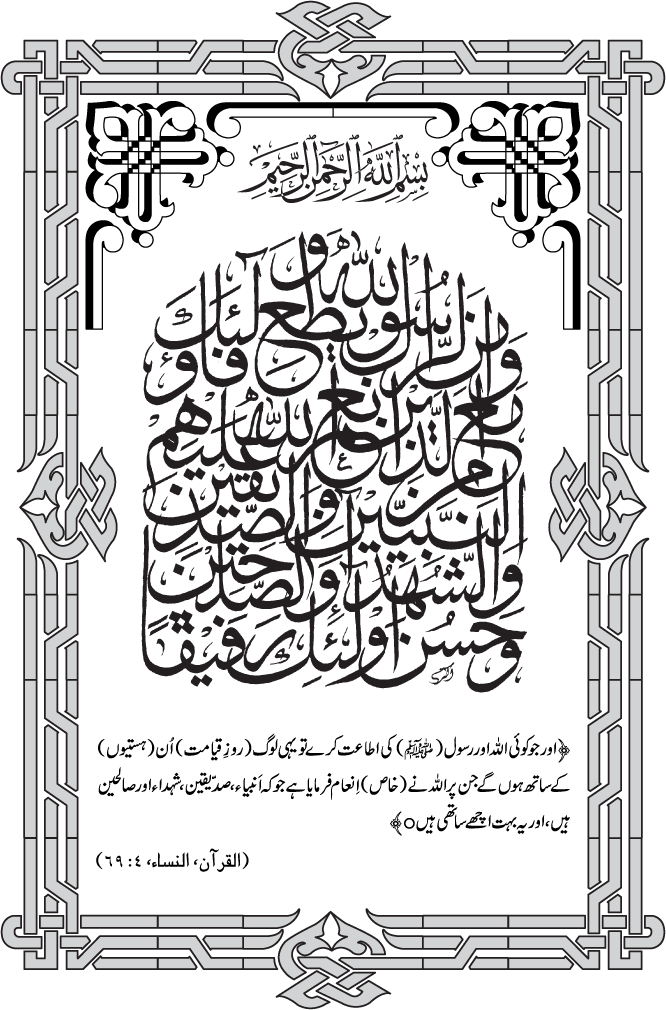 بسم الله الرحمن الرحيم
ومن يطع الله و
الرسول فاولئك
مع الذين انعم الله عليهم
من النبيين والصديقين
والشهداء والصلحين
وحسن اولئك رفيقا
﴿اور جو کوئی اللہ اور رسول (ﷺ) کی اطاعت کرے تو یہی لوگ (روزِ قیامت) اُن (ہستیوں)
کے ساتھ ہوں گے جن پر اللہ نے (خاص) اِنعام فرمایا ہے جو کہ اَنبیاء، صدّیقین، شہداء اور صالحین
ہیں، اور یہ بہت اچھے ساتھی ہیں○﴾
(القرآن، النساء، ٤ : ٦٩)